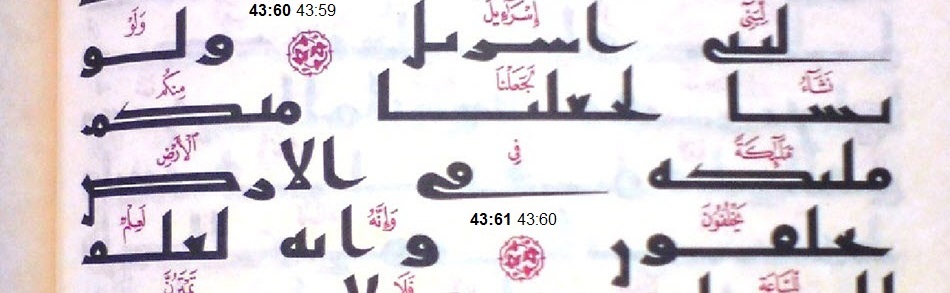 لِّبَنِىٓ إِسْرَٰٓءِيلَ 43:60 43:59 وَلَوْ
لبنى اسريل ولو
نَشَآءُ لَجَعَلْنَا مِنكُم
نشا لجعلنا منكم
مَّلَٰٓئِكَةً فِى ٱلْأَرْضِ
ملئكة فى الارض
يَخْلُفُونَ 43:61 43:60 وَإِنَّهُۥ لَعِلْمٌ
يخلفون وانه لعلم
لِّلسَّاعَةِ فَلَا تَمْتَرُنَّ